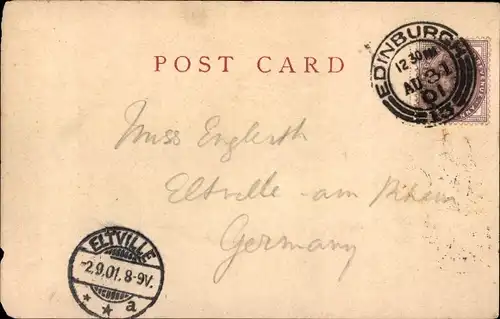 EDINBURGH
12 30 PM
AU 31
01
13
POST CARD
Miss Engleroth
Eltville am Rhein
Germany
ELTVILLE
-2.9.01. 8-9V.
* * a